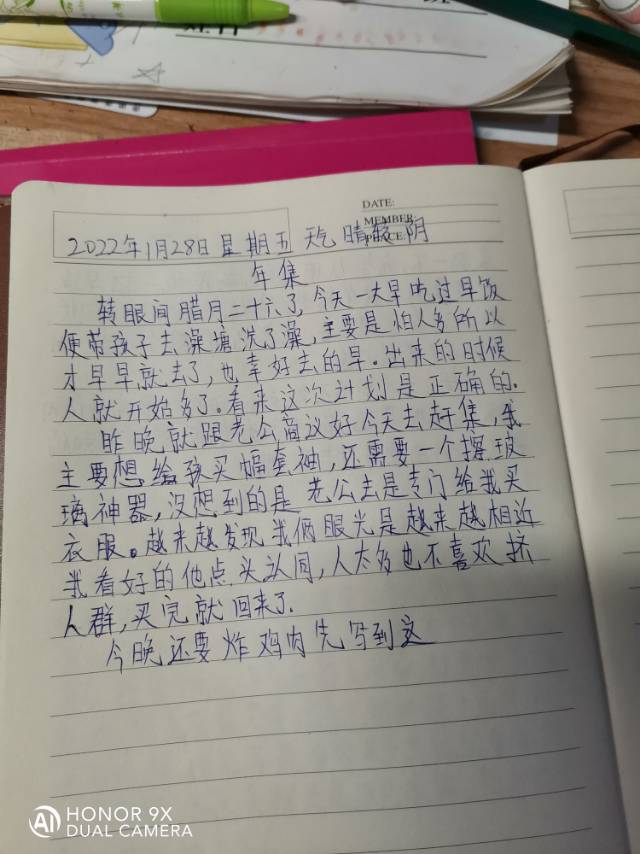 姓名
班
DATE:
MEMBER:
PLACE:
2022年1月28日 星期五 天气 晴转阴
年集
转眼间腊月二十六了,今天一大早吃过早饭
便带孩子去澡塘洗了澡,主要是怕人多所以
才早早就去了,也幸好去的早.出来的时候
人就开始多了.看来这次计划是正确的.
昨晚就跟老公商议好今天去赶集,我
主要想给孩买幅套袖,还需要一个擦玻
璃神器,没想到的是老公去是专门给我买
衣服。越来越发现我俩眼光是越来越相近
我看好的他点头认同,人太多也不喜欢挤
人群,买完就回来了.
今晚还要炸鸡肉先写到这
HONOR 9X
DUAL CAMERA